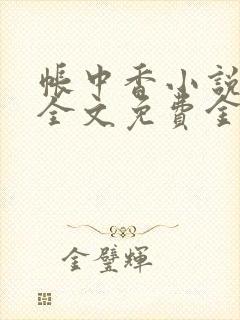 帳中香小說
全文免費全
金璧輝